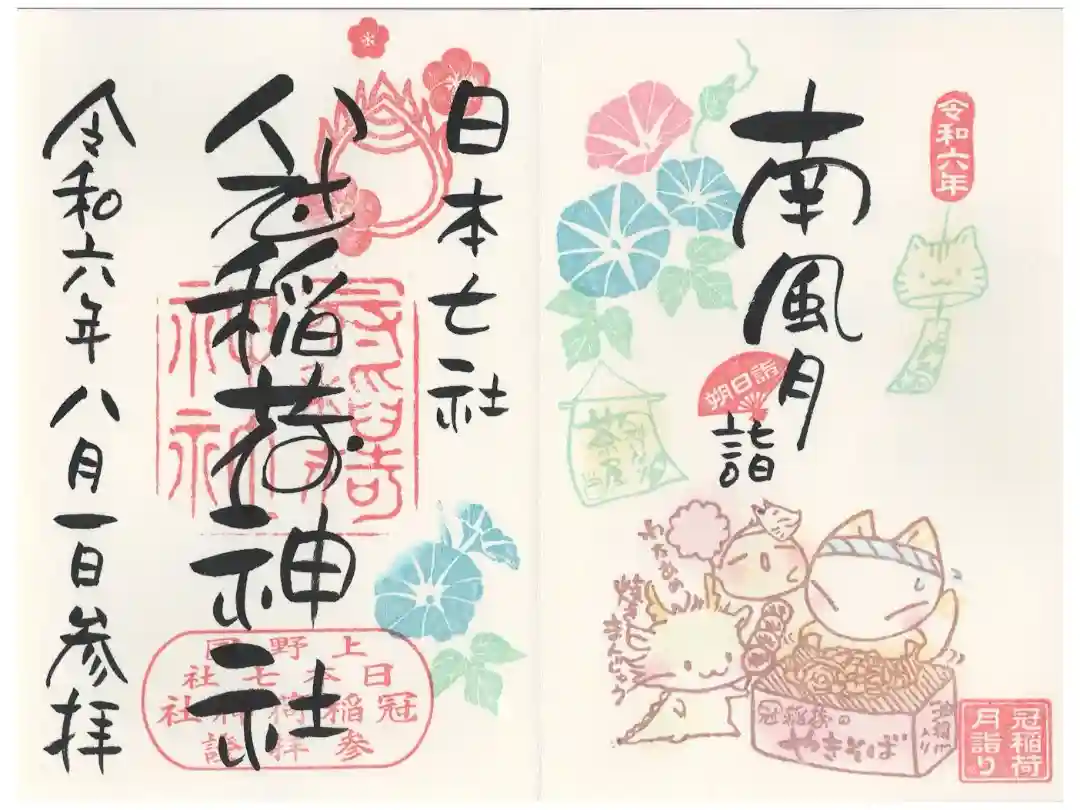 令和六年
南風月
詣
朔日詣
茶屋
わたあめ
焼き
まんじゅう
冠稲荷の
やきそば
冠稲荷
月詣り
日本七社
冠稲荷神社
令和六年八月一日参拝
上野国
日本七社
冠稲荷神社
參拜證